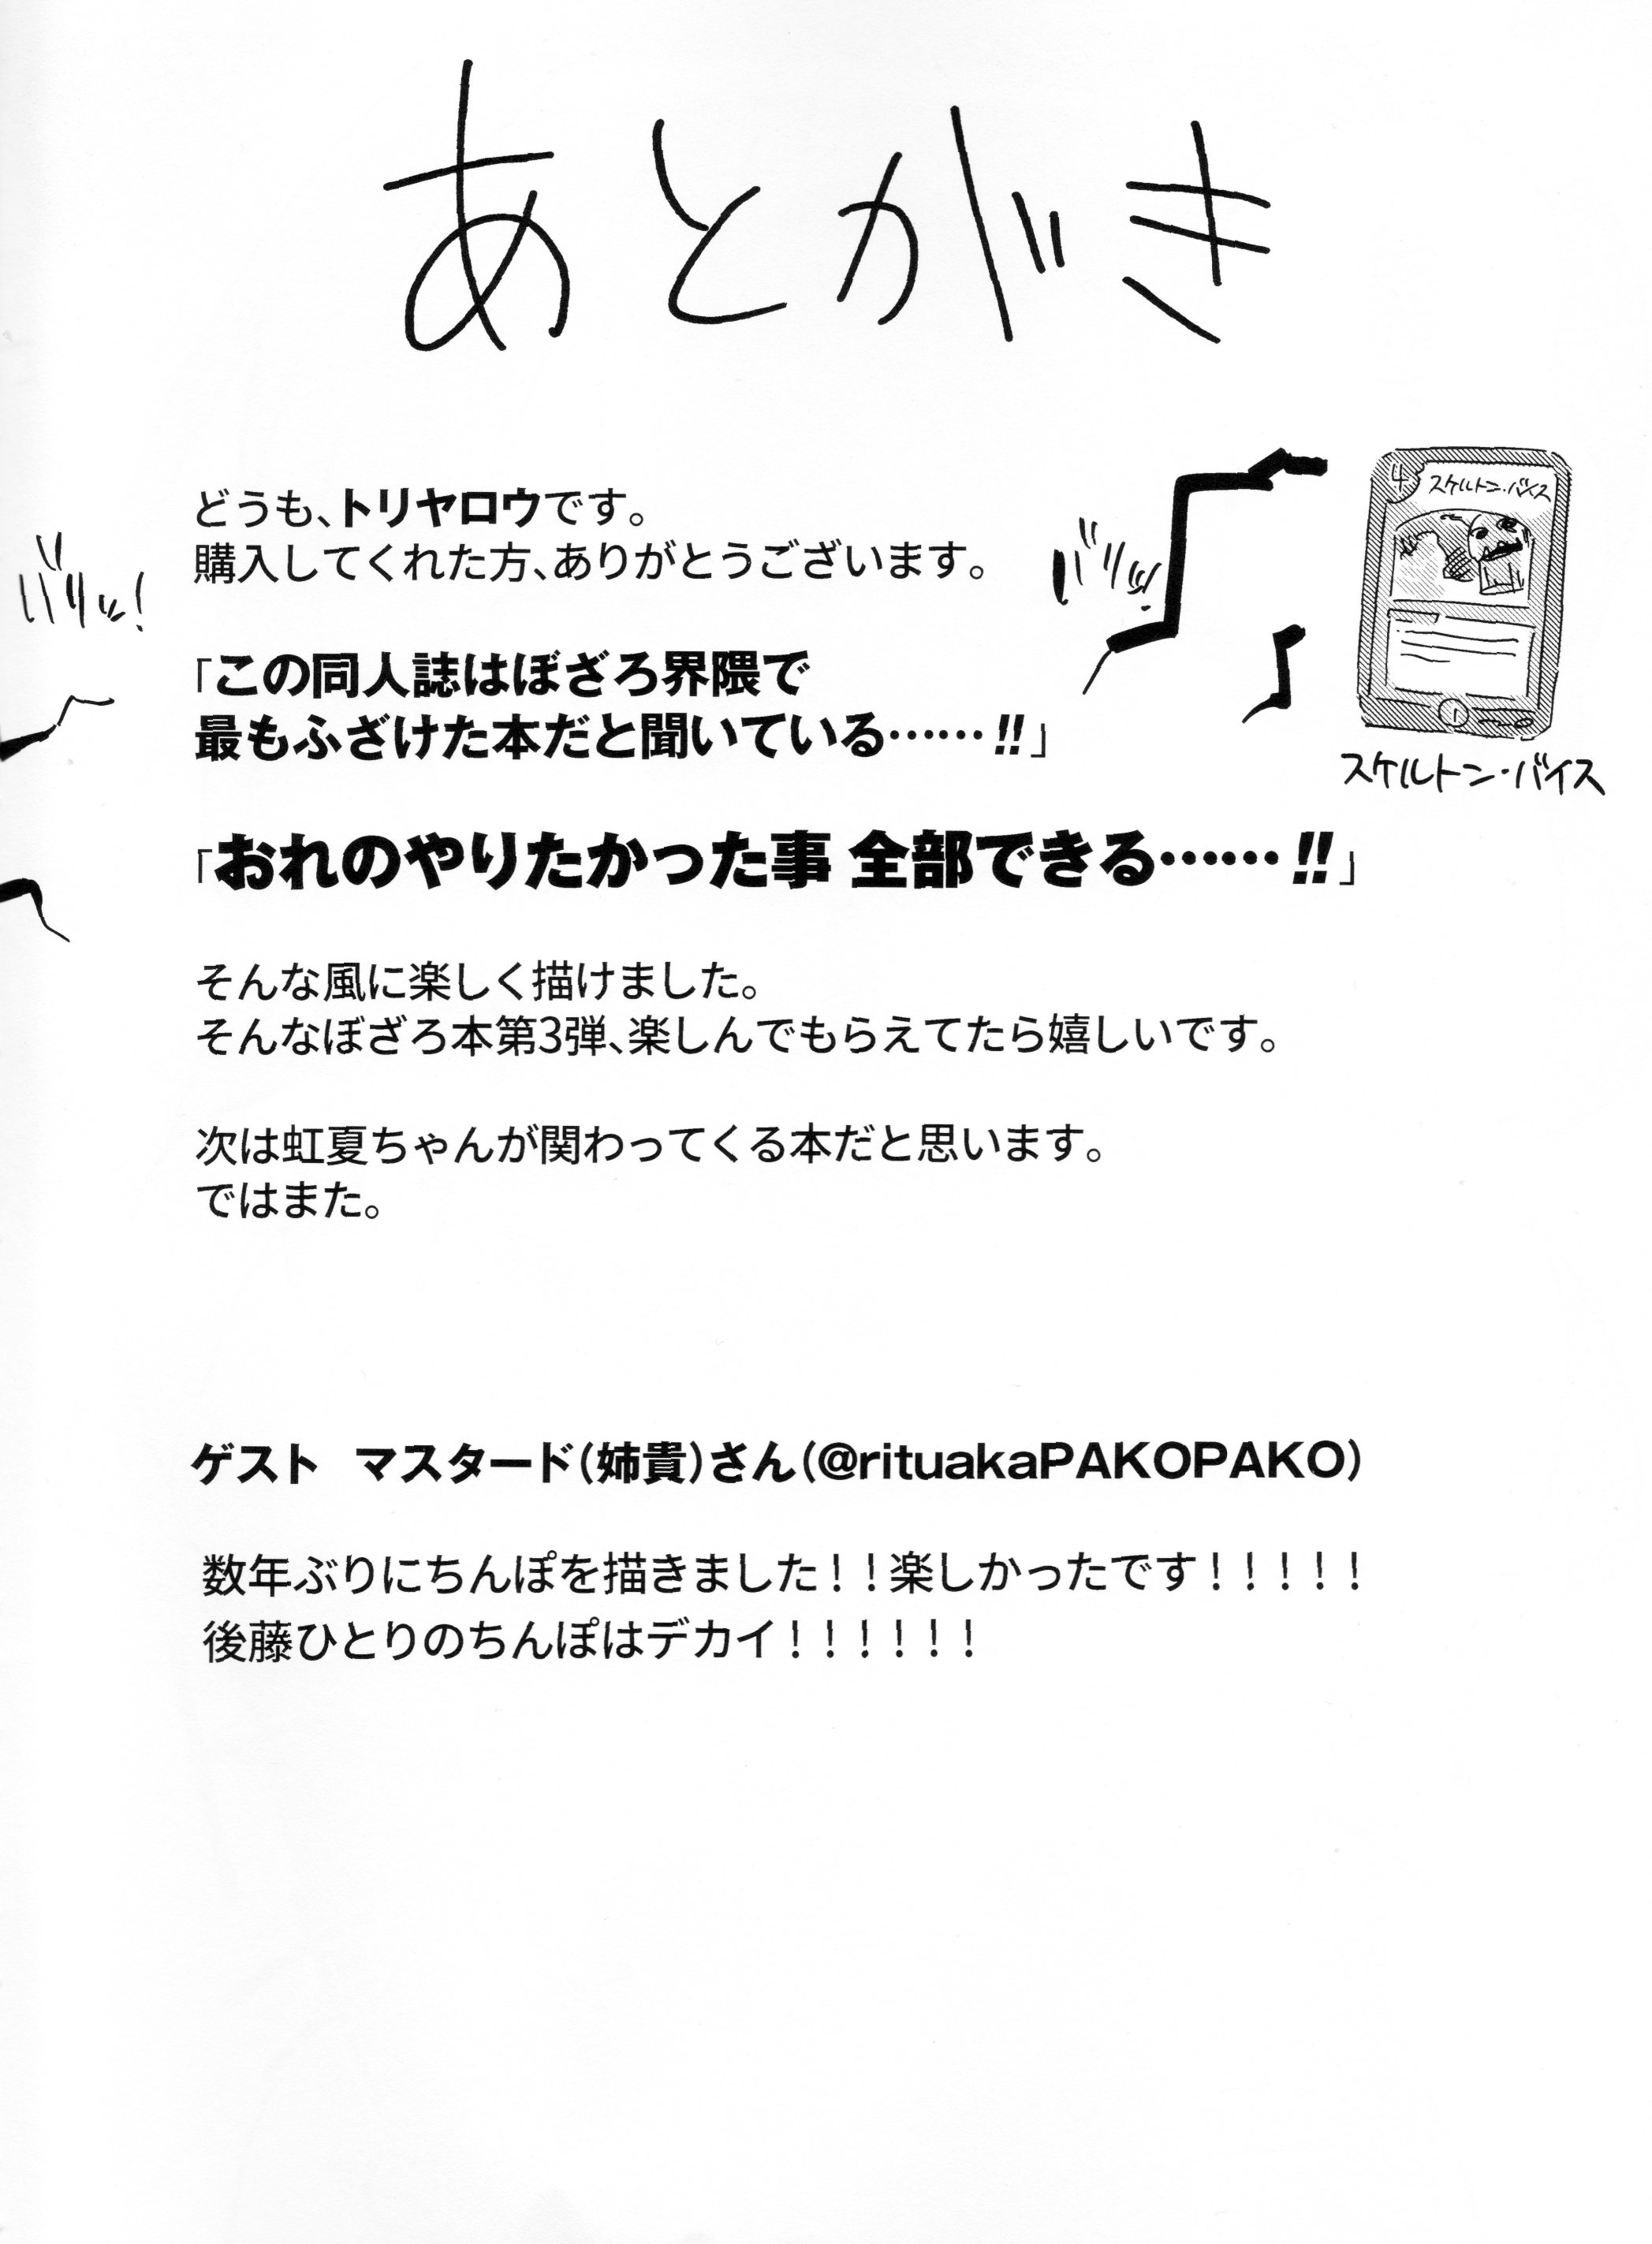 あとがき
どうも、トリヤロウです。
購入してくれた方、ありがとうございます。
バリッ!
バリッ!
4
スケルトン・バイス
1
スケルトン・バイス
「この同人誌はぼざろ界隈で
最もふざけた本だと聞いている……!!」
「おれのやりたかった事 全部できる……!!」
そんな風に楽しく描けました。
そんなぼざろ本第3弾、楽しんでもらえてたら嬉しいです。
次は虹夏ちゃんが関わってくる本だと思います。
ではまた。
ゲスト マスタード(姉貴)さん(@rituakaPAKOPAKO)
数年ぶりにちんぽを描きました!!楽しかったです!!!!!
後藤ひとりのちんぽはデカイ!!!!!!